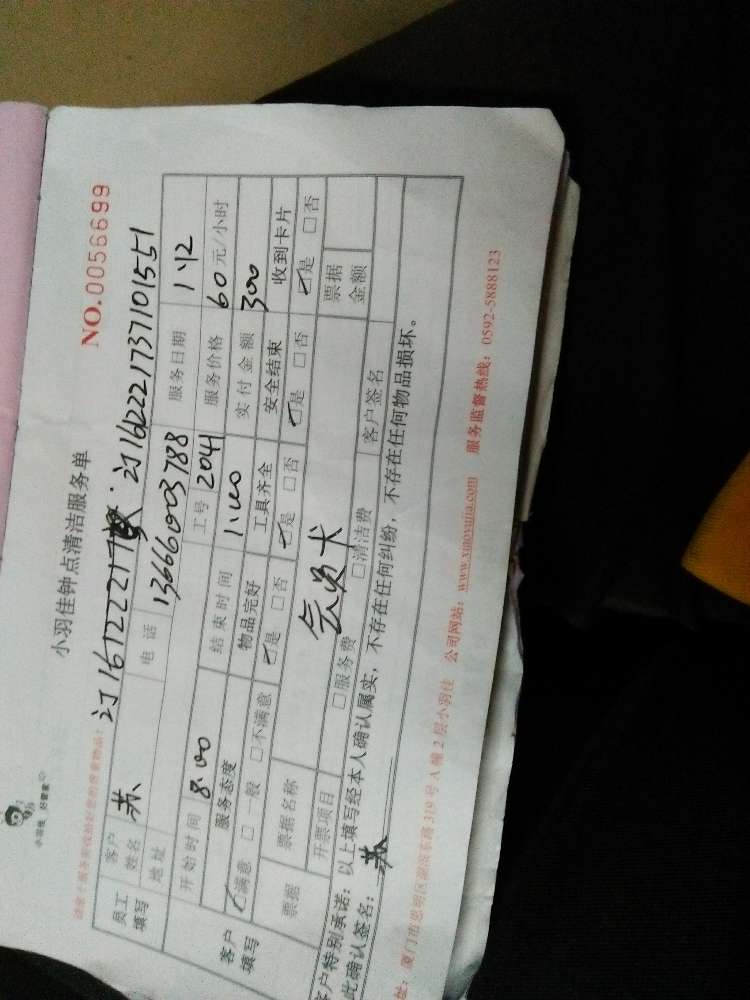 小羽佳 好管家
小羽佳钟点清洁服务单
NO.0056699
订1612221737101551
员工填写 客户姓名 苏 电话 13666003788 服务日期 1.12
地址 工号 2041 服务价格 60元/小时
开始时间 8:00 结束时间 1:00 实付金额 300
客户填写 服务态度 物品完好 工具齐全 安全结束 收到卡片
☑满意 □一般 □不满意 ☑是 □否 ☑是 □否 ☑是 □否 ☑是 □否
票据 票据名称 会员卡 票据金额
开票项目 □服务费 □清洁费 客户签名
客户特别承诺:以上填写经本人确认属实,不存在任何纠纷,不存在任何物品损坏。
此确认签名:苏
址:厦门市思明区湖滨东路319号A幢2层小羽佳 公司网站:www.xiaoyujia.com 服务监督热线:0592-5888123